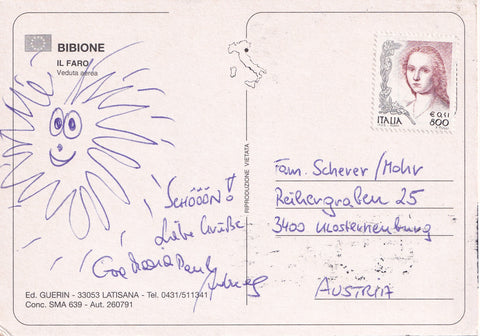 BIBIONE
IL FARO
Veduta aerea
SCHÖÖÖN!
Liebe Grüße
Eva Paul
Ed. GUERIN - 33053 LATISANA - Tel. 0431/511341
Conc. SMA 639 - Aut. 260791
RIPRODUZIONE VIETATA
ITALIA
€ 0,41
800
Fam. Scherer/Mohr
Reihergraben 25
3400 Klosterneuburg
AUSTRIA